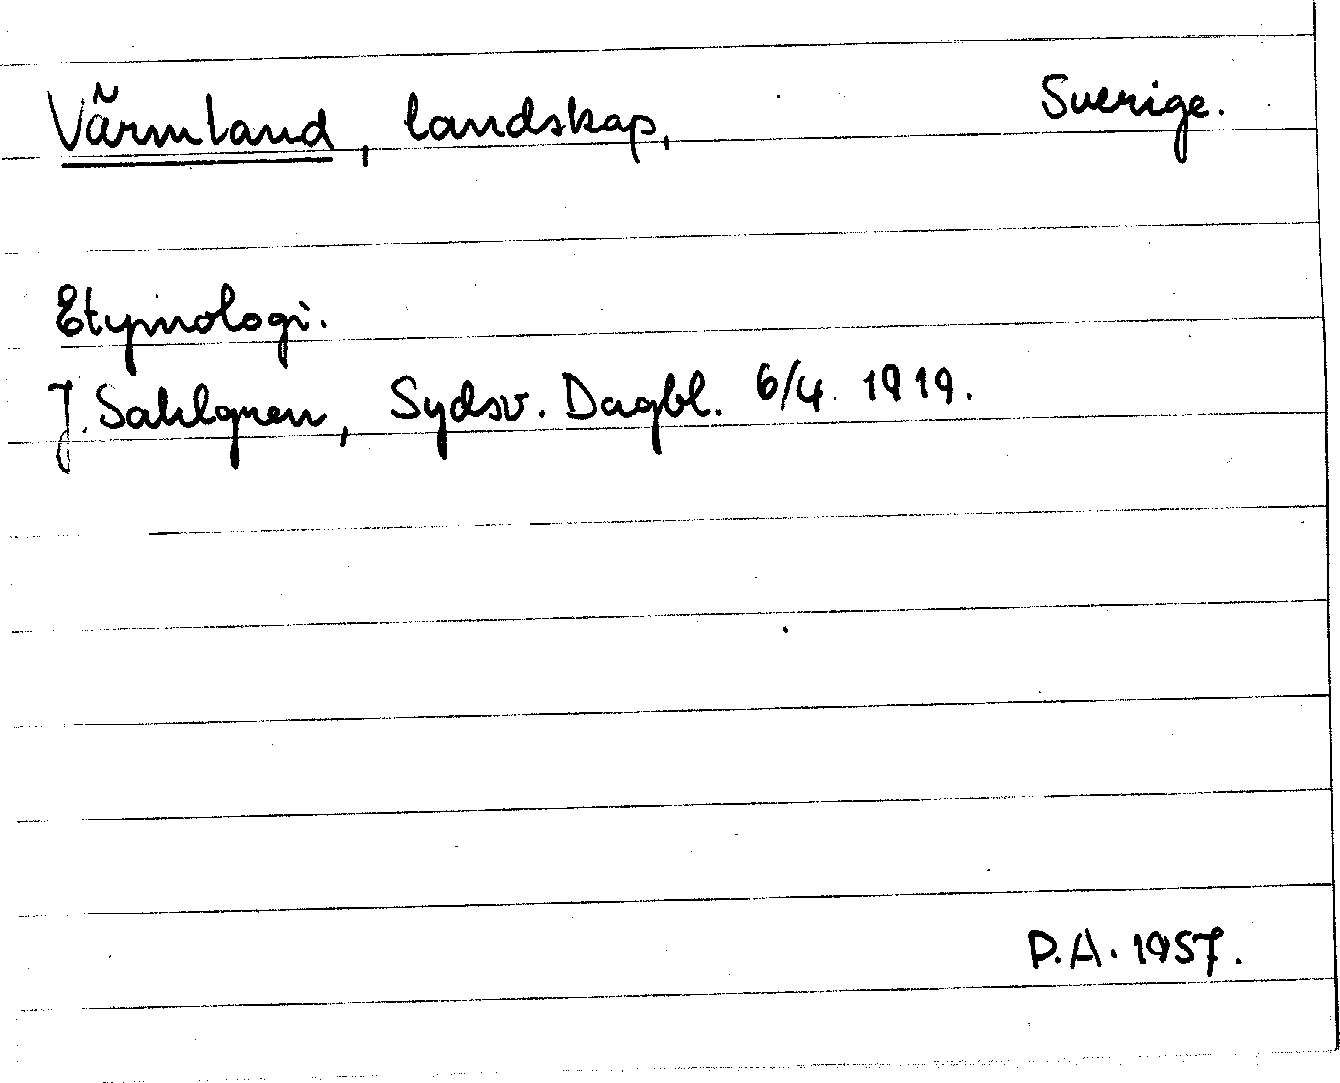 Värmland, landskap, Sverige.
Etymologi.
J. Sahlgren, Sydsv. Dagbl. 6/4 1919.
P.A. 1957.